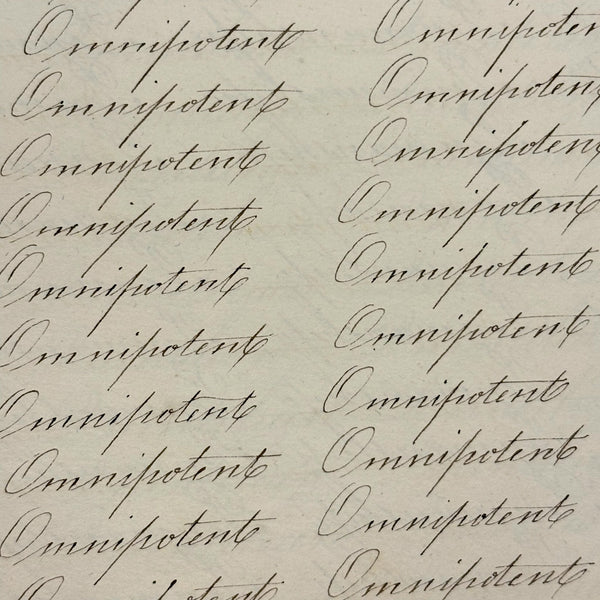 Omnipotent
Omnipotent
Omnipotent
Omnipotent
Omnipotent
Omnipotent
Omnipotent
Omnipotent
Omnipotent
Omnipotent
Omnipoten
Omnipoten
Omnipotent
Omnipotent
Omnipotent
Omnipotent
Omnipotent
Omnipotent
Omnipotent
Omnipotent